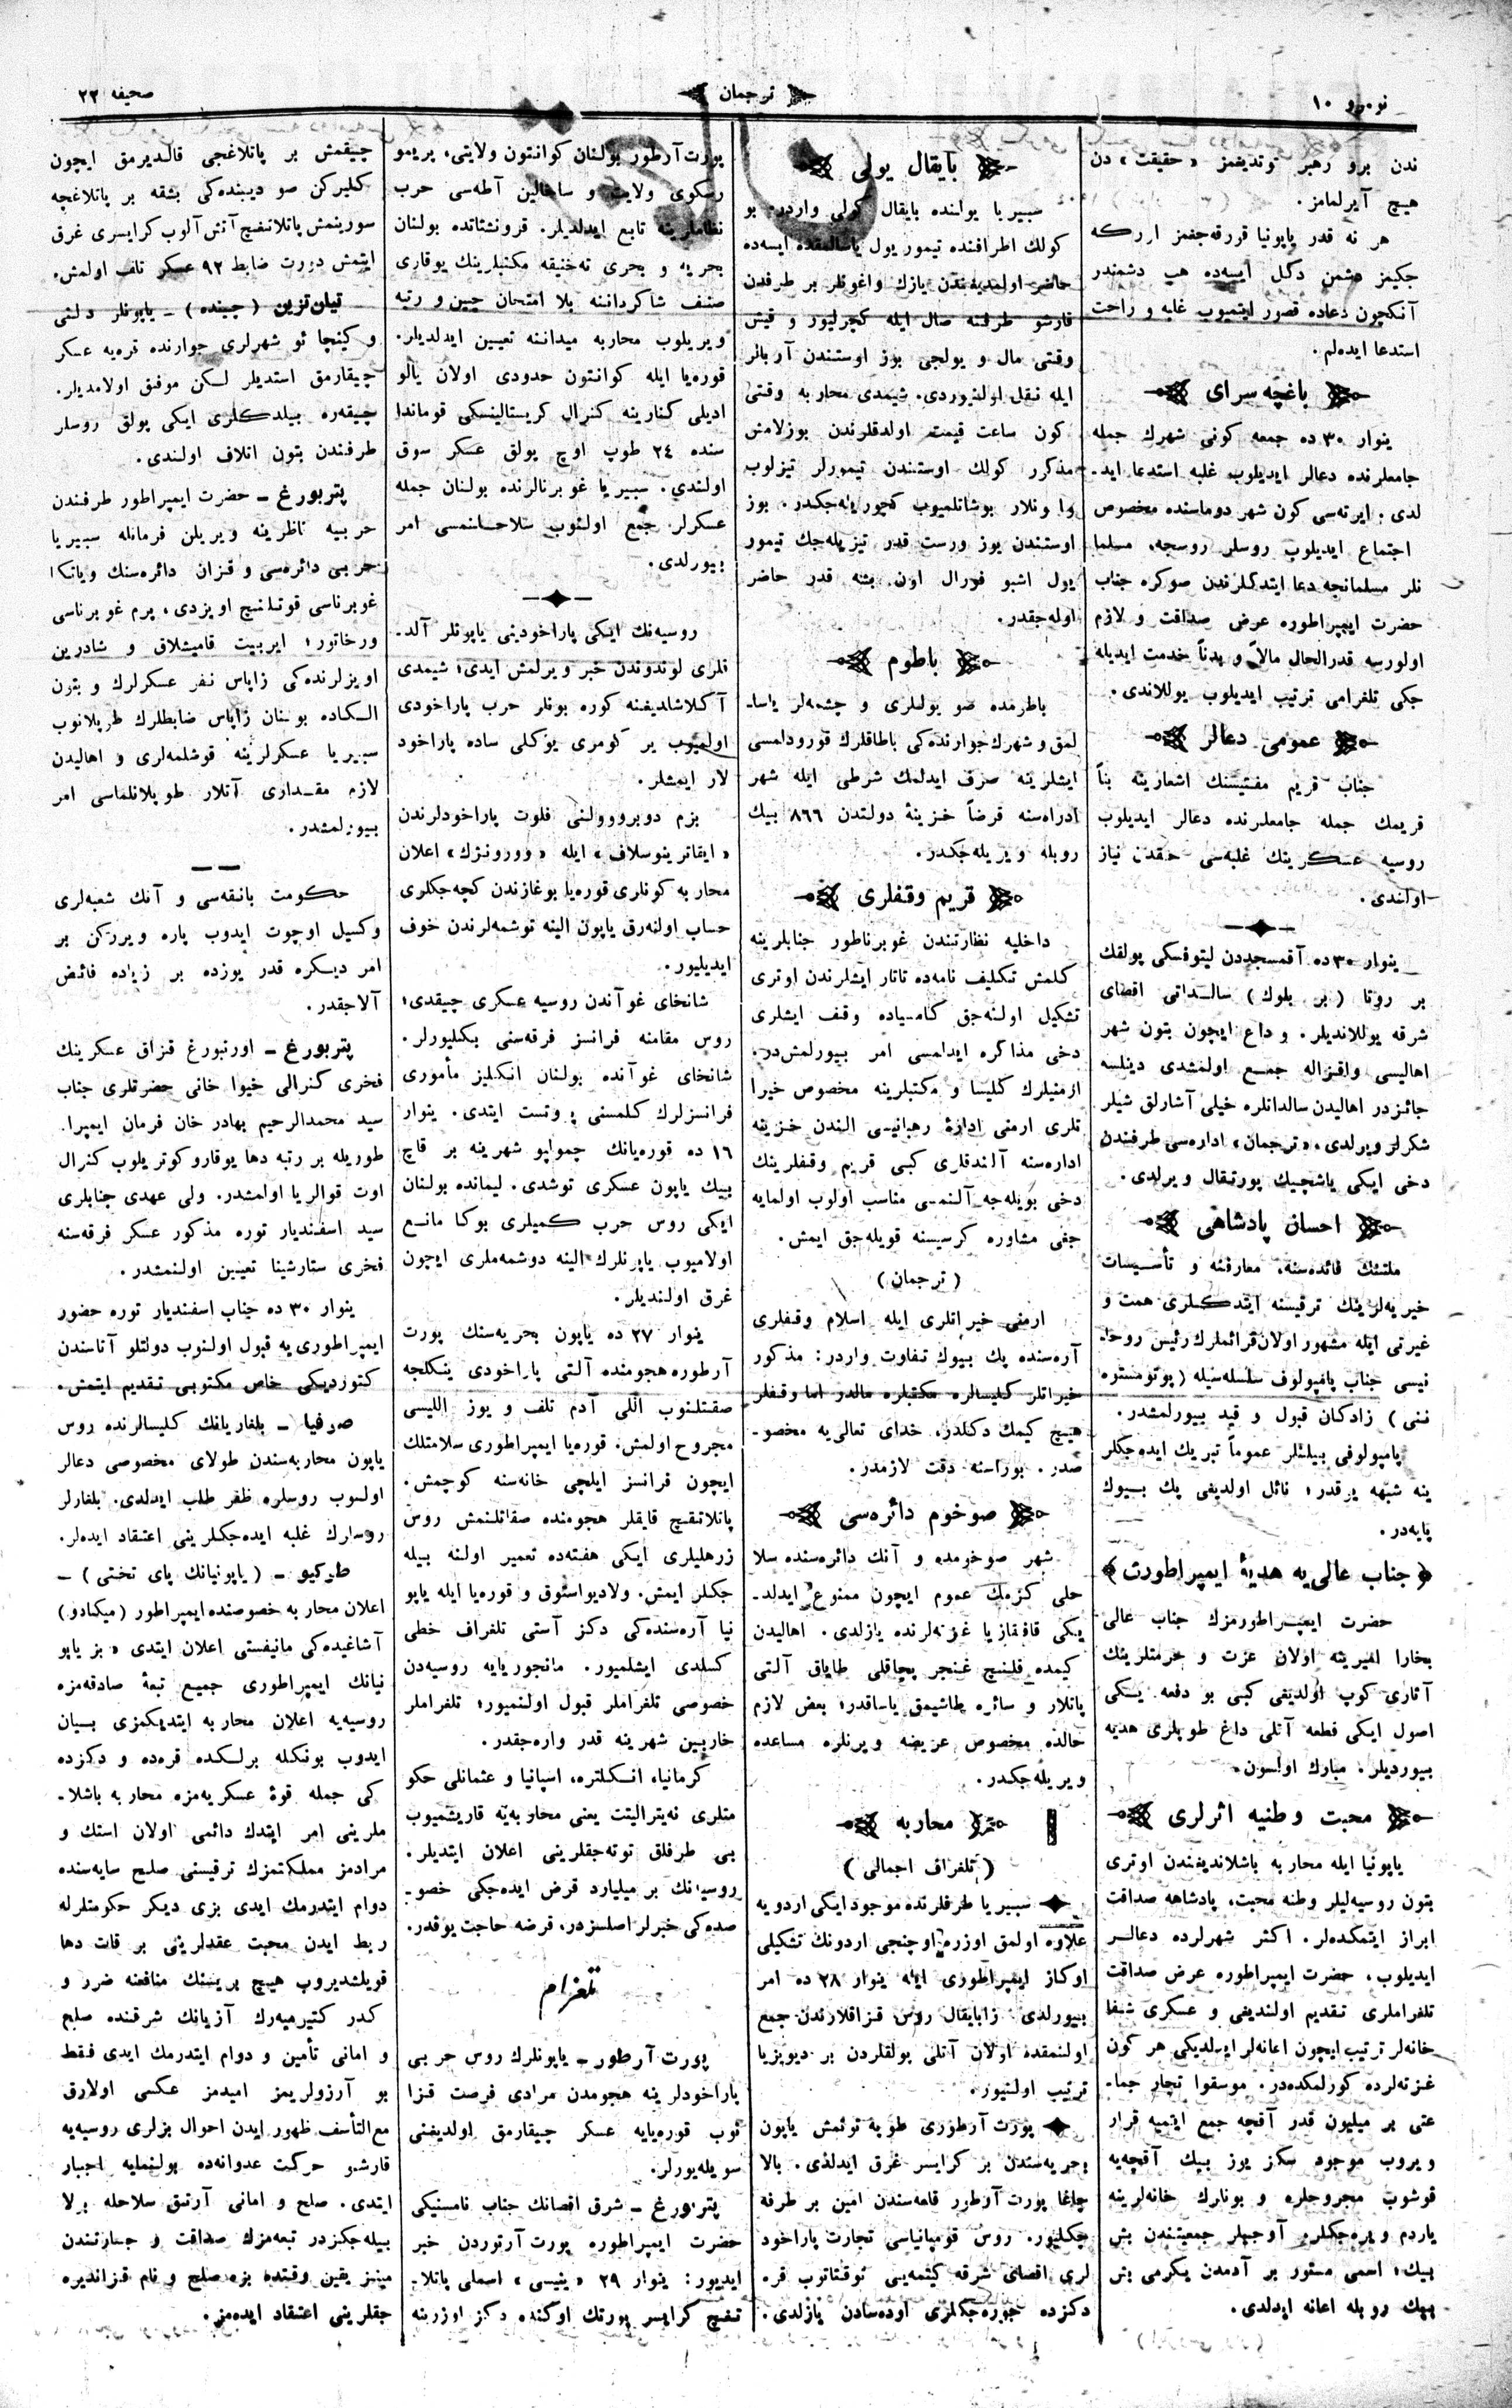 نومرو ١٠
ترجمان
صحیفه ٢٢
ندن برو رهبر توتدیغمز «حقیقت» دن
هیچ آیرلمامز.
هر نه قدر یاپونیا قورقه‌جغمز ارركه
جكیمز دشمن دگل ایسه‌ده هپ دشمندر
آنكچون دعاده قصور ایتمیوب غلبه و راحت
استدعا ایده‌لم.
باغچه سرای
ینوار ٣٠ ده جمعه كونی شهرك جمله
جامعلرنده دعالر ایدیلوب غلبه استدعا اید-
لدی. ایرته‌سی كون شهر دوماسنده مخصوص
اجتماع ایدیلوب روسلر روسجه، مسلما
نلر مسلمانجه دعا ایتدكلرندن صوكره جناب
حضرت ایمپراطوره عرض صداقت و لازم
اولورسه قدرالحال مالاً و بدناً خدمت ایدیله
جكی تلغرامی ترتیب ایدیلوب یوللاندی.
عمومی دعالر
جناب قریم مفتیسنك اشعارینه بناً
قریمك جمله جامعلرنده دعالر ایدیلوب
روسیه عسكرینك غلبه‌سی حقدن نیاز
اولندی.
ینوار ٣٠ ده آقمسجددن لیتوفسكی پولقك
بر روتا (بر بلوك) سالداتی اقصای
شرقه یوللاندیلر. وداع ایچون بتون شهر
اهالیسی واقزاله جمع اولمشدی دینلسه
جائزدر اهالیدن سالداتلره خیلی آشارلق شیلر
شكرلر ویرلدی. «ترجمان» اداره‌سی طرفندن
دخی ایكی یاشچیك پورتقال ویرلدی.
احسان پادشاهی
ملتنك فائده‌سنه، معارفنه و تأسیسات
خیریه‌لرینك ترقیسنه ایتدكلری همت و
غیرتی ایله مشهور اولان قرائملرك رئیس روحا-
نیسی جناب پامپولوف سلسله‌سیله (پوتومستوه
ننی) زادكان قبول و قید بیورلمشدر.
پامپولوفی بیلنلر عموماً تبریك ایده‌جكلر
ینه شبهه یوقدر؛ نائل اولدیغی پك بیوك
پایه‌در.
﴿جناب عالی‌یه هدیۀ ایمپراطورت﴾
حضرت ایمپراطورمزك جناب عالی
بخارا امیرینه اولان عزت و حرمتلرینك
آثاری كوپ اولدیغی كبی بو دفعه یكی
اصول ایكی قطعه آتلی داغ طوپلری هدیه
بیوردیلر. مبارك اولسون.
محبت وطنیه اثرلری
یاپونیا ایله محاربه باشلاندیغندن اوتری
بتون روسیه‌لیلر وطنه محبت، پادشاهه صداقت
ابراز ایتمكده‌لر. اكثر شهرلرده دعالر
ایدیلوب، حضرت ایمپراطوره عرض صداقت
تلغراملری تقدیم اولندیغی و عسكری شفا
خانه‌لر ترتیب ایچون اعانه‌لر ایدلدیكی هر كون
غزته‌لرده كورلمكده‌در. موسقوا تجار جما-
عتی بر میلیون قدر آقچه جمع ایتمیه قرار
ویروب موجود سكز یوز بیك آقچه‌یه
قوشوب مجروحلره و بونارك خانه‌لرینه
یاردم ویره‌جكلر. آوجیلر جمعیتندن بش
بیك، اسمی مستور بر آدمدن یكرمی بش
بیك روبله اعانه ایدلدی.
بایقال یولی
سبیریا یولنده بایقال كولی واردر. بو
كولك اطرافنده تیمور یول یاسالمقده ایسه‌ده
حاضر اولمدیغندن یازك واغونلر بر طرفدن
قارشو طرفنه صال ایله كچرلیور و قیش
وقتی مال و یولجی بوز اوستندن آربالر
ایله نقل اولنیوردی. شیمدی محاربه وقتی
كون ساعت قیمت اولدقلرندن بوزلامش
مذكور كولك اوستندن تیمورلر تیزلوب
واغونلار بوشاتلمیوب كچوریله‌جكدر. بوز
اوستندن یوز ورست قدر تیزیله‌جك تیمور
یول اشبو فورال اون بشه قدر حاضر
اوله‌جقدر.
باطوم
باطومده صو یولیلری و چشمه‌لر یاسا-
لمق و شهرك جوارنده‌كی باطاقلرك قورودلمسی
ایشلرینه صرف ایدلمك شرطی ایله شهر
اداره‌سنه قرضاً خزینۀ دولتدن ٨٦٦ بیك
روبله ویریله‌جكدر.
قریم وقفلری
داخلیه نظارتندن غوبرناطور جنابلرینه
كلمش تكلیف نامه‌ده تاتار ایشلرندن اوتری
تشكیل اولنه‌جق كامسیاده وقف ایشلری
دخی مذاكره ایدلمسی امر بیورلمش‌در.
ارمنیلرك كلیسا و مكتبلرینه مخصوص خیرا
تلری ارمنی ادارۀ رهبانیسی الندن خزینه
اداره‌سنه آلندقلری كبی قریم وقفلرینك
دخی بویله‌جه آلنمسی مناسب اولوب اولمایه
جغی مشاوره كرسیسنه قویله‌جق ایمش.
(ترجمان)
ارمنی خیراتلری ایله اسلام وقفلری
آره‌سنده پك بیوك تفاوت واردر: مذكور
خیراتلر كلیسالره مكتبلره مالدر اما وقفلر
هیچ كیمك دكلدر، خدای تعالی‌یه مخصو-
صدر. بوراسنه دقت لازمدر.
صوخوم دائره‌سی
شهر صوخومده و آنك دائره‌سنده سلا
حلی كزمك عموم ایچون ممنوع ایدلد-
یكی قافقازیا غزته‌لرنده یازلدی. اهالیدن
كیمده قلنیچ غنجر پچاقلی طایاق آلتی
پاتلار و سائره طاشیمق یاساقدر؛ بعض لازم
حالده مخصوص عریضه ویرنلره مساعده
ویریله‌جكدر.
محاربه
(تلغراف اجمالی)
سبیریا طرفلرنده موجود ایكی اردویه
علاوه اولمق اوزره اوچنجی اردونك تشكیلی
اوكاز ایمپراطوری ایله ینوار ٢٨ ده امر
بیورلدی. زابایقال روس قزاقلارندن جمع
اولنمقده اولان آتلی پولقلردن بر دیویزیا
ترتیب اولنیور.
پورت آرطوری طوپه توتمش یاپون
بحریه‌سندن بر كرایسر غرق ایدلدی. بالا
چاغا پورت آرطور قلعه‌سندن امین بر طرفه
چكلیور. روس قومپانیاسی تجارت پاراخود
لری اقصای شرقه كیتمه‌یی توقتاتوب قره
دكزده جوره‌جكلری اوده‌سادن یازلدی.
پورت آرطور بولنان كوانتون ولایتی، پریمو
رسكوی ولایت و ساخالین آطه‌سی حرب
نظاملرینه تابع ایدلدیلر. قرونشتاتده بولنان
بحریه و بحری ته‌خنیقه مكتبلرینك یوقاری
صنف شاكرداننه بلا امتحان چین و رتبه
ویریلوب محاربه میداننه تعیین ایدلدیلر.
قوره‌یا ایله كوانتون حدودی اولان یالو
ادیلی كنارینه كنرال كریستالینسكی قوماندا
سنده ٢٤ طوپ اوچ پولق عسكر سوق
اولندی. سبیریا غوبرنالرنده بولنان جمله
عسكرلر جمع اولنوب سلاحلنمسی امر
بیورلدی.
روسیه‌نك ایكی پاراخودینی یاپونلر آلد-
قلری لوندوندن خبر ویرلمش ایدی؛ شیمدی
آكلاشلدیغنه كوره بونلر حرب پاراخودی
اولمیوب بر كومری یوكلی ساده پاراخود
لار ایمشلر.
بزم دوبرووولنی فلوت پاراخودلرندن
«ایقاترینوسلاف» ایله «وورونژك» اعلان
محاربه كونلری قوره‌یا بوغازندن كچه‌جكلری
حساب اولنه‌رق یاپون الینه توشمه‌لرندن خوف
ایدیلیور.
شانخای غوآندن روسیه عسكری چیقدی؛
روس مقامنه فرانسز فرقه‌سنی بكلیورلر.
شانخای غوآنده بولنان انكلیز مأموری
فرانسزلرك كلمسنی پروتست ایتدی. ینوار
١٦ ده قوره‌یانك چمولپو شهرینه بر قاچ
بیك یاپون عسكری توشدی. لیمانده بولنان
ایكی روس حرب كمیلری بوكا مانع
اولامیوب یاپونلرك الینه دوشمه‌ملری ایچون
غرق اولندیلر.
ینوار ٢٧ ده یاپون بحریه‌سنك پورت
آرطوره هجومنده آلتی پاراخودی ینكلجه
صقتلنوب اللی آدم تلف و یوز اللیسی
مجروح اولمش. قوره‌یا ایمپراطوری سلامتلك
ایچون فرانسز ایلچی خانه‌سنه كوچمش.
پاتلاتقیچ قایقلر هجومنده صقاتلنمش روس
زرهلیلری ایكی هفته‌ده تعمیر اولنه بیله
جكلر ایمش. ولادیواستوق و قوره‌یا ایله یاپو
نیا آره‌سنده‌كی دكز آستی تلغراف خطی
كسلدی ایشلمیور. مانجوریایه روسیه‌دن
خصوصی تلغراملر قبول اولنمیور؛ تلغراملر
خاربین شهرینه قدر واره‌جقدر.
كرمانیا، انكلتره، اسپانیا و عثمانلی حكو
متلری نه‌یترالیتت یعنی محاربه‌یه قاریشمیوب
بی طرفلق توته‌جقلرینی اعلان ایتدیلر.
روسیه‌نك بر میلیارد قرض ایده‌جكی خصو-
صده‌كی خبرلر اصلسزدر، قرضه حاجت یوقدر.
تلغرام
پورت آرطور - یاپونلرك روس حربی
پاراخودلرینه هجومدن مرادی فرصت قزا
نوب قوره‌یایه عسكر چیقارمق اولدیغنی
سویله‌یورلر.
پتربورغ - شرق اقصانك جناب نامسنیكی
حضرت ایمپراطوره پورت آرتوردن خبر
ایدیور: ینوار ٢٩ «ینیسی» اسملی پاتلا-
تقیچ كرایسر پورتك اوكنده دكز اوزرینه
چیقمش بر پاتلاغجی قالدیرمق ایچون
كلیركن صو دیبنده‌كی بشقه بر پاتلاغچه
سورینمش پاتلاتقیچ آتش آلوب كرایسری غرق
ایتمش دورت ضابط ٩٢ عسكر تلف اولمش.
تیان‌تزین (چینده) - یاپونلر دلنی
و كینجا ئو شهرلری جوارنده قره‌یه عسكر
چیقارمق استدیلر لكن موفق اولامدیلر.
چیقه‌ره بیلدكلری ایكی پولق روسلر
طرفندن بتون اتلاف اولندی.
پتربورغ - حضرت ایمپراطور طرفندن
حربیه ناظرینه ویریلن فرمانله سبیریا
حربی دائره‌سی و قزان دائره‌سنك ویاتكا
غوبرناسی قوتلنیچ اویزدی، پرم غوبرناسی
ورخاتور؛ ایربیت قامیشلاق و شادرین
اویزلرنده‌كی زاپاس نفر عسكرلرك و بتون
الكاده بولنان زاپاس ضابطلرك طوپلانوب
سبیریا عسكرلرینه قوشلمه‌لری و اهالیدن
لازم مقداری آتلار طوپلانلماسی امر
بیورلمشدر.
حكومت بانقه‌سی و آنك شعبه‌لری
وكسیل اوچوت ایدوب پاره ویرركن بر
امر دیكره قدر یوزده بر زیاده فائض
آلاجقدر.
پتربورغ - اورنبورغ قزاق عسكرینك
فخری كنرالی خیوا خانی حضرتلری جناب
سید محمدالرحیم بهادر خان فرمان ایمپرا-
طوریله بر رتبه دها یوقارو كوتریلوب كنرال
اوت قوالریا اولمشدر. ولی عهدی جنابلری
سید اسفندیار توره مذكور عسكر فرقه‌سنه
فخری ستارشینا تعیین اولنمشدر.
ینوار ٣٠ ده جناب اسفندیار توره حضور
ایمپراطوری‌یه قبول اولنوب دولتلو آتاسندن
كتوردیكی خاص مكتوبی تقدیم ایتمش.
صوفیا - بلغاریانك كلیسالرنده روس
یاپون محاربه‌سندن طولای مخصوصی دعالر
اولوب روسلره ظفر طلب ایدلدی. بلغارلر
روسلرك غلبه ایده‌جكلرینی اعتقاد ایده‌لر.
طوكیو - (یاپونیانك پای تختی) -
اعلان محاربه خصوصنده ایمپراطور (میكادو)
آشاغیده‌كی مانیفستی اعلان ایتدی «بز یاپو
نیانك ایمپراطوری جمیع تبعۀ صادقه‌مزه
روسیه‌یه اعلان محاربه ایتدیكمزی بیان
ایدوب بونكله برلكده قره‌ده و دكزده
كی جمله قوۀ عسكریه‌مزه محاربه باشلا-
ملرینی امر ایتدك دائمی اولان استك و
مرادمز مملكتمزك ترقیسنی صلح سایه‌سنده
دوام ایتدرمك ایدی بزی دیكر حكومتلرله
ربط ایدن محبت عقدلرینی بر قات دها
قویلشدیروپ هیچ بریسنك منافعنه ضرر و
كدر كتیرمیه‌رك آزیانك شرقنده صلح
و امانی تأمین و دوام ایتدرمك ایدی فقط
بو آرزولریمز امیدمز عكسی اولارق
مع التأسف ظهور ایدن احوال بزلری روسیه‌یه
قارشو حركت عدوانه‌ده بولنمایه اجبار
ایتدی. صلح و امانی آرتق سلاحله بولا
بیله‌جكزدر تبعه‌مزك صداقت و جسارتندن
مینز یقین وقتده بزه صلح و نام قزاندیره
جقلرینی اعتقاد ایده‌مز.